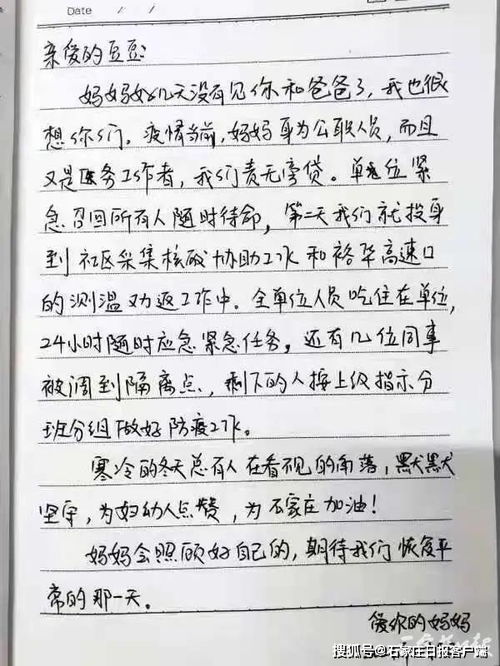 Date
亲爱的豆豆:
妈妈好几天没有见你和爸爸了,我也很
想你们。疫情当前,妈妈身为公职人员,而且
又是医务工作者,我们责无旁贷。单位紧
急召回所有人随时待命,第二天我们就投身
到社区采集核酸协助工作和裕华高速口
的测温劝返工作中。全单位人员吃住在单位,
24小时随时应急紧急任务。还有几位同事
被调到隔离点,剩下的人按上级指示分
班分组做好防疫工作。
寒冷的冬天总有人在看不见的角落,默默
坚守,为妇幼人点赞,为石家庄加油!
妈妈会照顾好自己的,期待我们恢复平
常的那一天。
爱你的妈妈
搜狐号@石家庄日报客户端